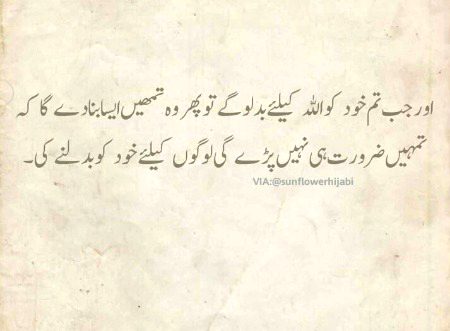 اور جب تم خود کو اللہ کیلئے بدلو گے تو پھر وہ تمھیں ایسا بنا دے گا کہ
تمہیں ضرورت ہی نہیں پڑے گی لوگوں کیلئے خود کو بدلنے کی۔
VIA:@sunflowerhijabi